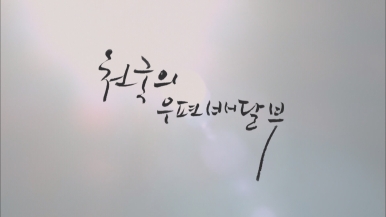 천국의
우편배달부